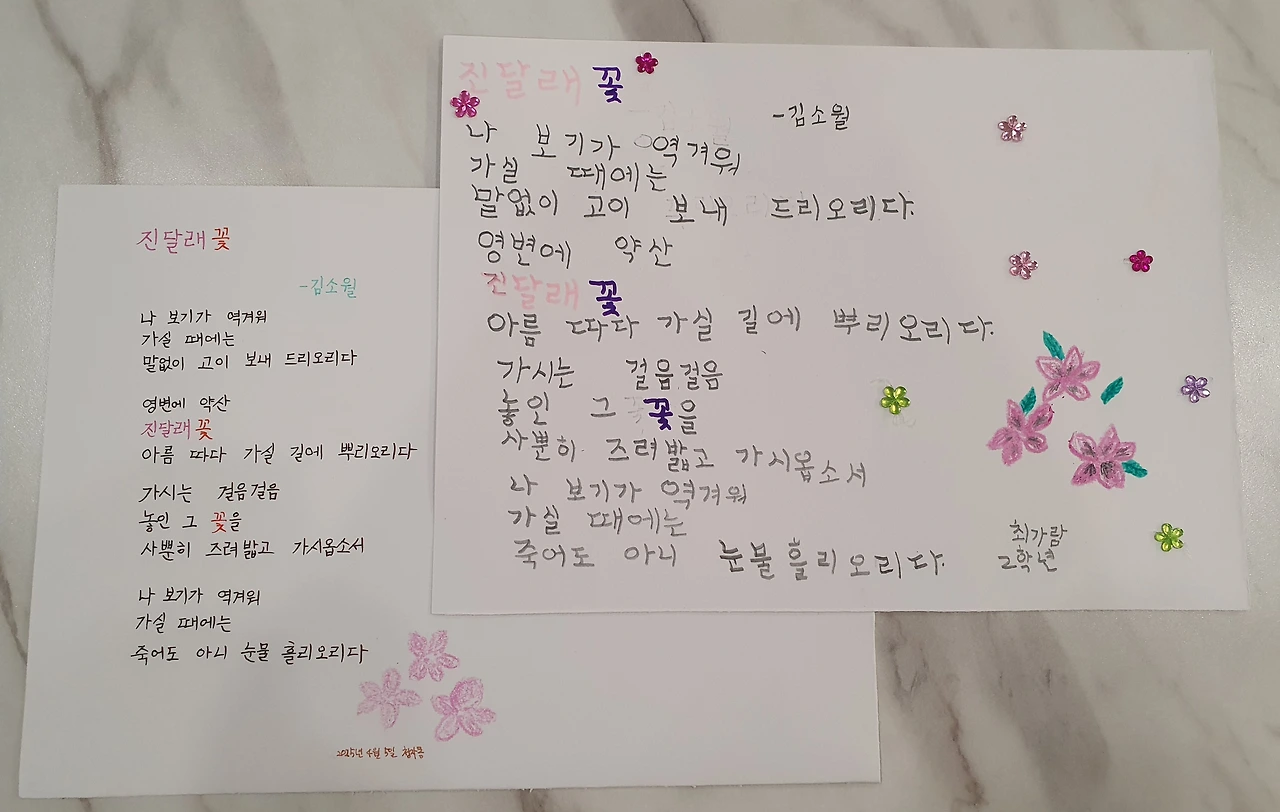 진달래꽃
-김소월
나 보기가 역겨워
가실 때에는
말없이 고이 보내 드리오리다
영변에 약산
진달래꽃
아름 따다 가실 길에 뿌리오리다
가시는 걸음걸음
놓인 그 꽃을
사뿐히 즈려밟고 가시옵소서
나 보기가 역겨워
가실 때에는
죽어도 아니 눈물 흘리오리다
2025년 4월 5일
진달래꽃
-김소월
나 보기가 역겨워
가실 때에는
말없이 고이 보내 드리오리다.
영변에 약산
진달래꽃
아름 따다 가실 길에 뿌리오리다.
가시는 걸음걸음
놓인 그 꽃을
사뿐히 즈려밟고 가시옵소서
나 보기가 역겨워
가실 때에는
죽어도 아니 눈불흘리오리다.
최가람
2학년